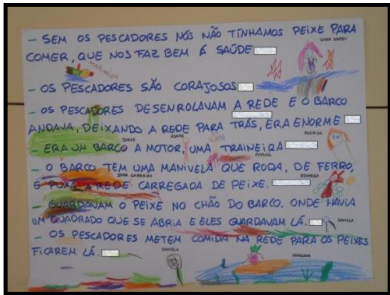 - SEM OS PESCADORES NÓS NÃO TÍNHAMOS PEIXE PARA
COMER, QUE NOS FAZ BEM À SAÚDE
- OS PESCADORES SÃO CORAJOSOS
- OS PESCADORES DESENROLAVAM A REDE E O BARCO
ANDAVA, DEIXANDO A REDE PARA TRÁS, ERA ENORME
- ERA UM BARCO A MOTOR, UMA TRAINEIRA
- O BARCO TEM UMA MANIVELA QUE RODA, DE FERRO,
E PUXA A REDE CARREGADA DE PEIXE.
- GUARDAVAM O PEIXE NO CHÃO DO BARCO. ONDE HAVIA
UM QUADRADO QUE SE ABRIA E ELES GUARDAVAM LÁ.
- OS PESCADORES METEM COMIDA NA REDE PARA OS PEIXES
FICAREM LÁ.